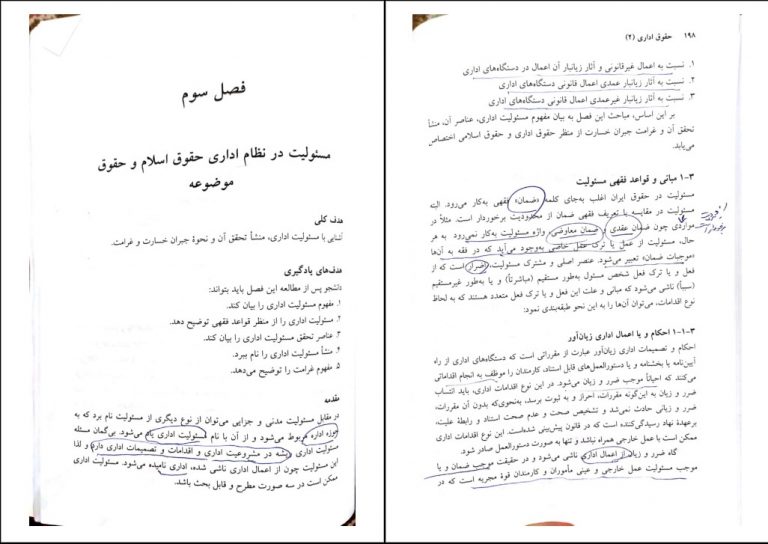 فصل سوم
مسئولیت در نظام اداری حقوق اسلام و حقوق
موضوعه
هدف کلی
آشنایی با مسئولیت اداری، منشأ تحقق آن و نحوهٔ جبران خسارت و غرامت.
هدف‌های یادگیری
دانشجو پس از مطالعه این فصل باید بتواند:
۱. مفهوم مسئولیت اداری را بیان کند.
۲. مسئولیت اداری را از منظر قواعد فقهی توضیح دهد.
۳. عناصر تحقق مسئولیت اداری را بیان کند.
۴. منشأ مسئولیت اداری را نام ببرد.
۵. مفهوم غرامت را توضیح می‌دهد.
مقدمه
در مقابل مسئولیت مدنی و جزایی می‌توان از نوع دیگری از مسئولیت نام برد که به
حوزه اداره مربوط می‌شود و از آن با نام مسئولیت اداری یاد می‌شود. بی‌گمان مسئله
مسئولیت اداری ریشه در مشروعیت اداری و اقدامات و تصمیمات اداری دارد و لذا
این مسئولیت چون از اعمال اداری ناشی شده، اداری نامیده می‌شود. مسئولیت اداری
ممکن است در سه صورت مطرح و قابل بحث باشد.
۱۹۸ حقوق اداری (۲)
۱. نسبت به اعمال غیرقانونی و آثار زیانبار آن اعمال در دستگاه‌های اداری
۲. نسبت به آثار زیانبار عمدی اعمال قانونی دستگاه‌های اداری
۳. نسبت به آثار زیانبار غیرعمدی اعمال قانونی دستگاه‌های اداری
بر این اساس، مباحث این فصل به بیان مفهوم مسئولیت اداری، عناصر آن، منشأ
تحقق آن و غرامت جبران خسارت از منظر حقوق اداری و حقوق اسلامی اختصاص
می‌یابد.
۳-۱ مبانی و قواعد فقهی مسئولیت
مسئولیت در حقوق ایران اغلب به‌جای کلمه «ضمان» فقهی به‌کار می‌رود. البته
مسئولیت در مقایسه با تعریف فقهی ضمان از محدودیت برخوردار است. مثلاً در
مواردی چون ضمان عقدی و ضمان معاوضی، واژه مسئولیت به‌کار نمی‌رود. به هر
حال، مسئولیت از عمل یا ترک عمل خاصی به‌وجود می‌آید که در فقه به آن‌ها
«موجبات ضمان» تعبیر می‌شود. عنصر اصلی و مشترک مسئولیت، اضرار است که از
فعل و یا ترک فعل شخص مسئول به‌طور مستقیم (مباشرتاً) و یا به‌طور غیرمستقیم
(سبباً) ناشی می‌شود که مبانی و علت این فعل و یا ترک فعل متعدد هستند که به لحاظ
نوع اقدامات، می‌توان آن‌ها را به این نحو طبقه‌بندی نمود:
۳-۱-۱ احکام و یا اعمال اداری زیان‌آور
احکام و تصمیمات اداری زیان‌آور عبارت از مقرراتی است که دستگاه‌های اداری از راه
آیین‌نامه یا بخشنامه و یا دستورالعمل‌های قابل استناد، کارمندان را موظف به انجام اقداماتی
می‌کنند که احیاناً موجب ضرر و زیان می‌شود. در این نوع اقدامات اداری، باید انتساب
ضرر و زیان به این‌گونه مقررات، احراز و به ثبوت برسد، به‌نحوی‌که بدون آن مقررات،
ضرر و زیانی حادث نمی‌شد و تشخیص صحت و عدم صحت استناد و رابطهٔ علیت،
برعهدهٔ نهاد رسیدگی‌کننده است که در قانون پیش‌بینی شده‌است. این نوع اقدامات اداری
ممکن است با عمل خارجی همراه نباشد و تنها به صورت دستورالعمل صادر شود.
گاه ضرر و زیان از اعمال اداری ناشی می‌شود و در حقیقت موجب ضمان و یا
موجب مسئولیت عمل خارجی و عینی مأموران و کارمندان قوهٔ مجریه است که در